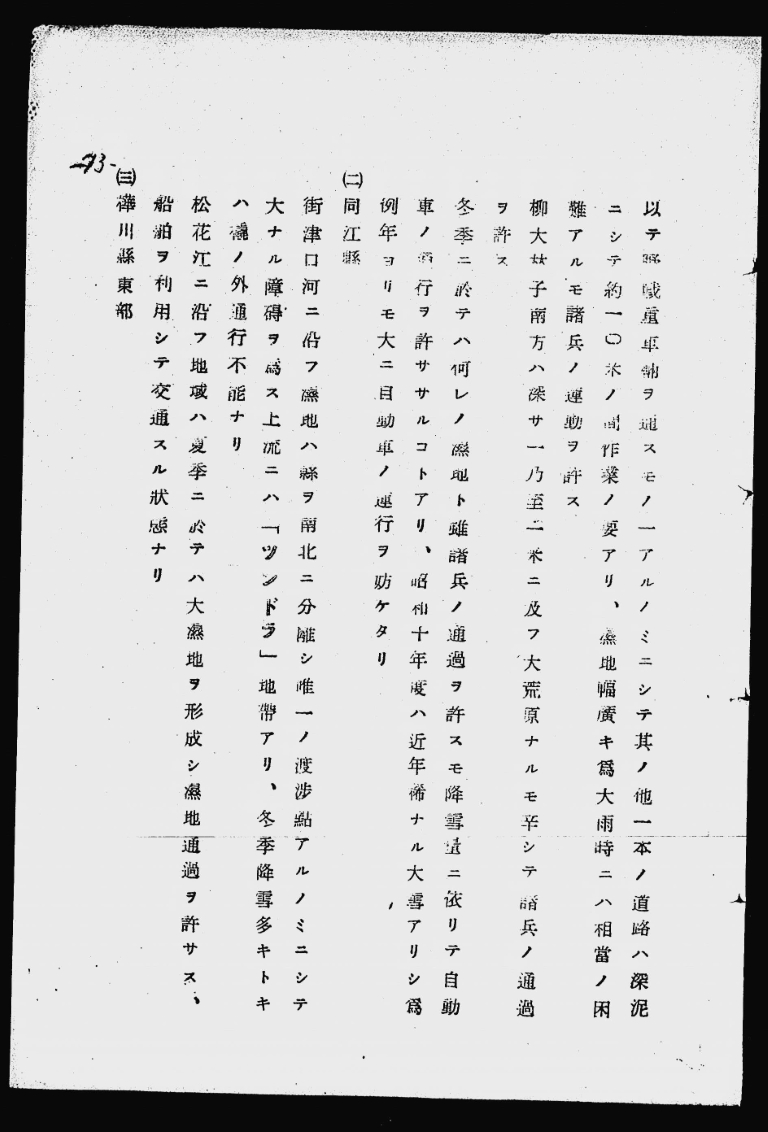 以テ野戰重車輛ヲ通スモノ一アルノミニシテ其ノ他一本ノ道路ハ深泥
ニシテ約一〇米ノ間作業ノ要アリ、濕地幅廣キ爲大雨時ニハ相當ノ困
難アルモ諸兵ノ運動ヲ許ス
柳大林子南方ハ深サ一乃至二米ニ及フ大荒原ナルモ辛シテ諸兵ノ通過
ヲ許ス
冬季ニ於テハ何レノ濕地ト雖諸兵ノ通過ヲ許スモ降雪量ニ依リテ自動
車ノ通行ヲ許ササルコトアリ、昭和十年度ハ近年稀ナル大雪アリシ爲
例年ヨリモ大ニ自動車ノ運行ヲ妨ケタリ
㈡同江縣
街津口河ニ沿フ濕地ハ縣ヲ南北ニ分離シ唯一ノ渡渉點アルノミニシテ
大ナル障碍ヲ爲ス上流ニハ「ツンドラ」地帶アリ、冬季降雪多キトキ
ハ橇ノ外通行不能ナリ
松花江ニ沿フ地域ハ夏季ニ於テハ大濕地ヲ形成シ濕地通過ヲ許サス、
船舶ヲ利用シテ交通スル狀態ナリ
㈢樺川縣東部
-73-